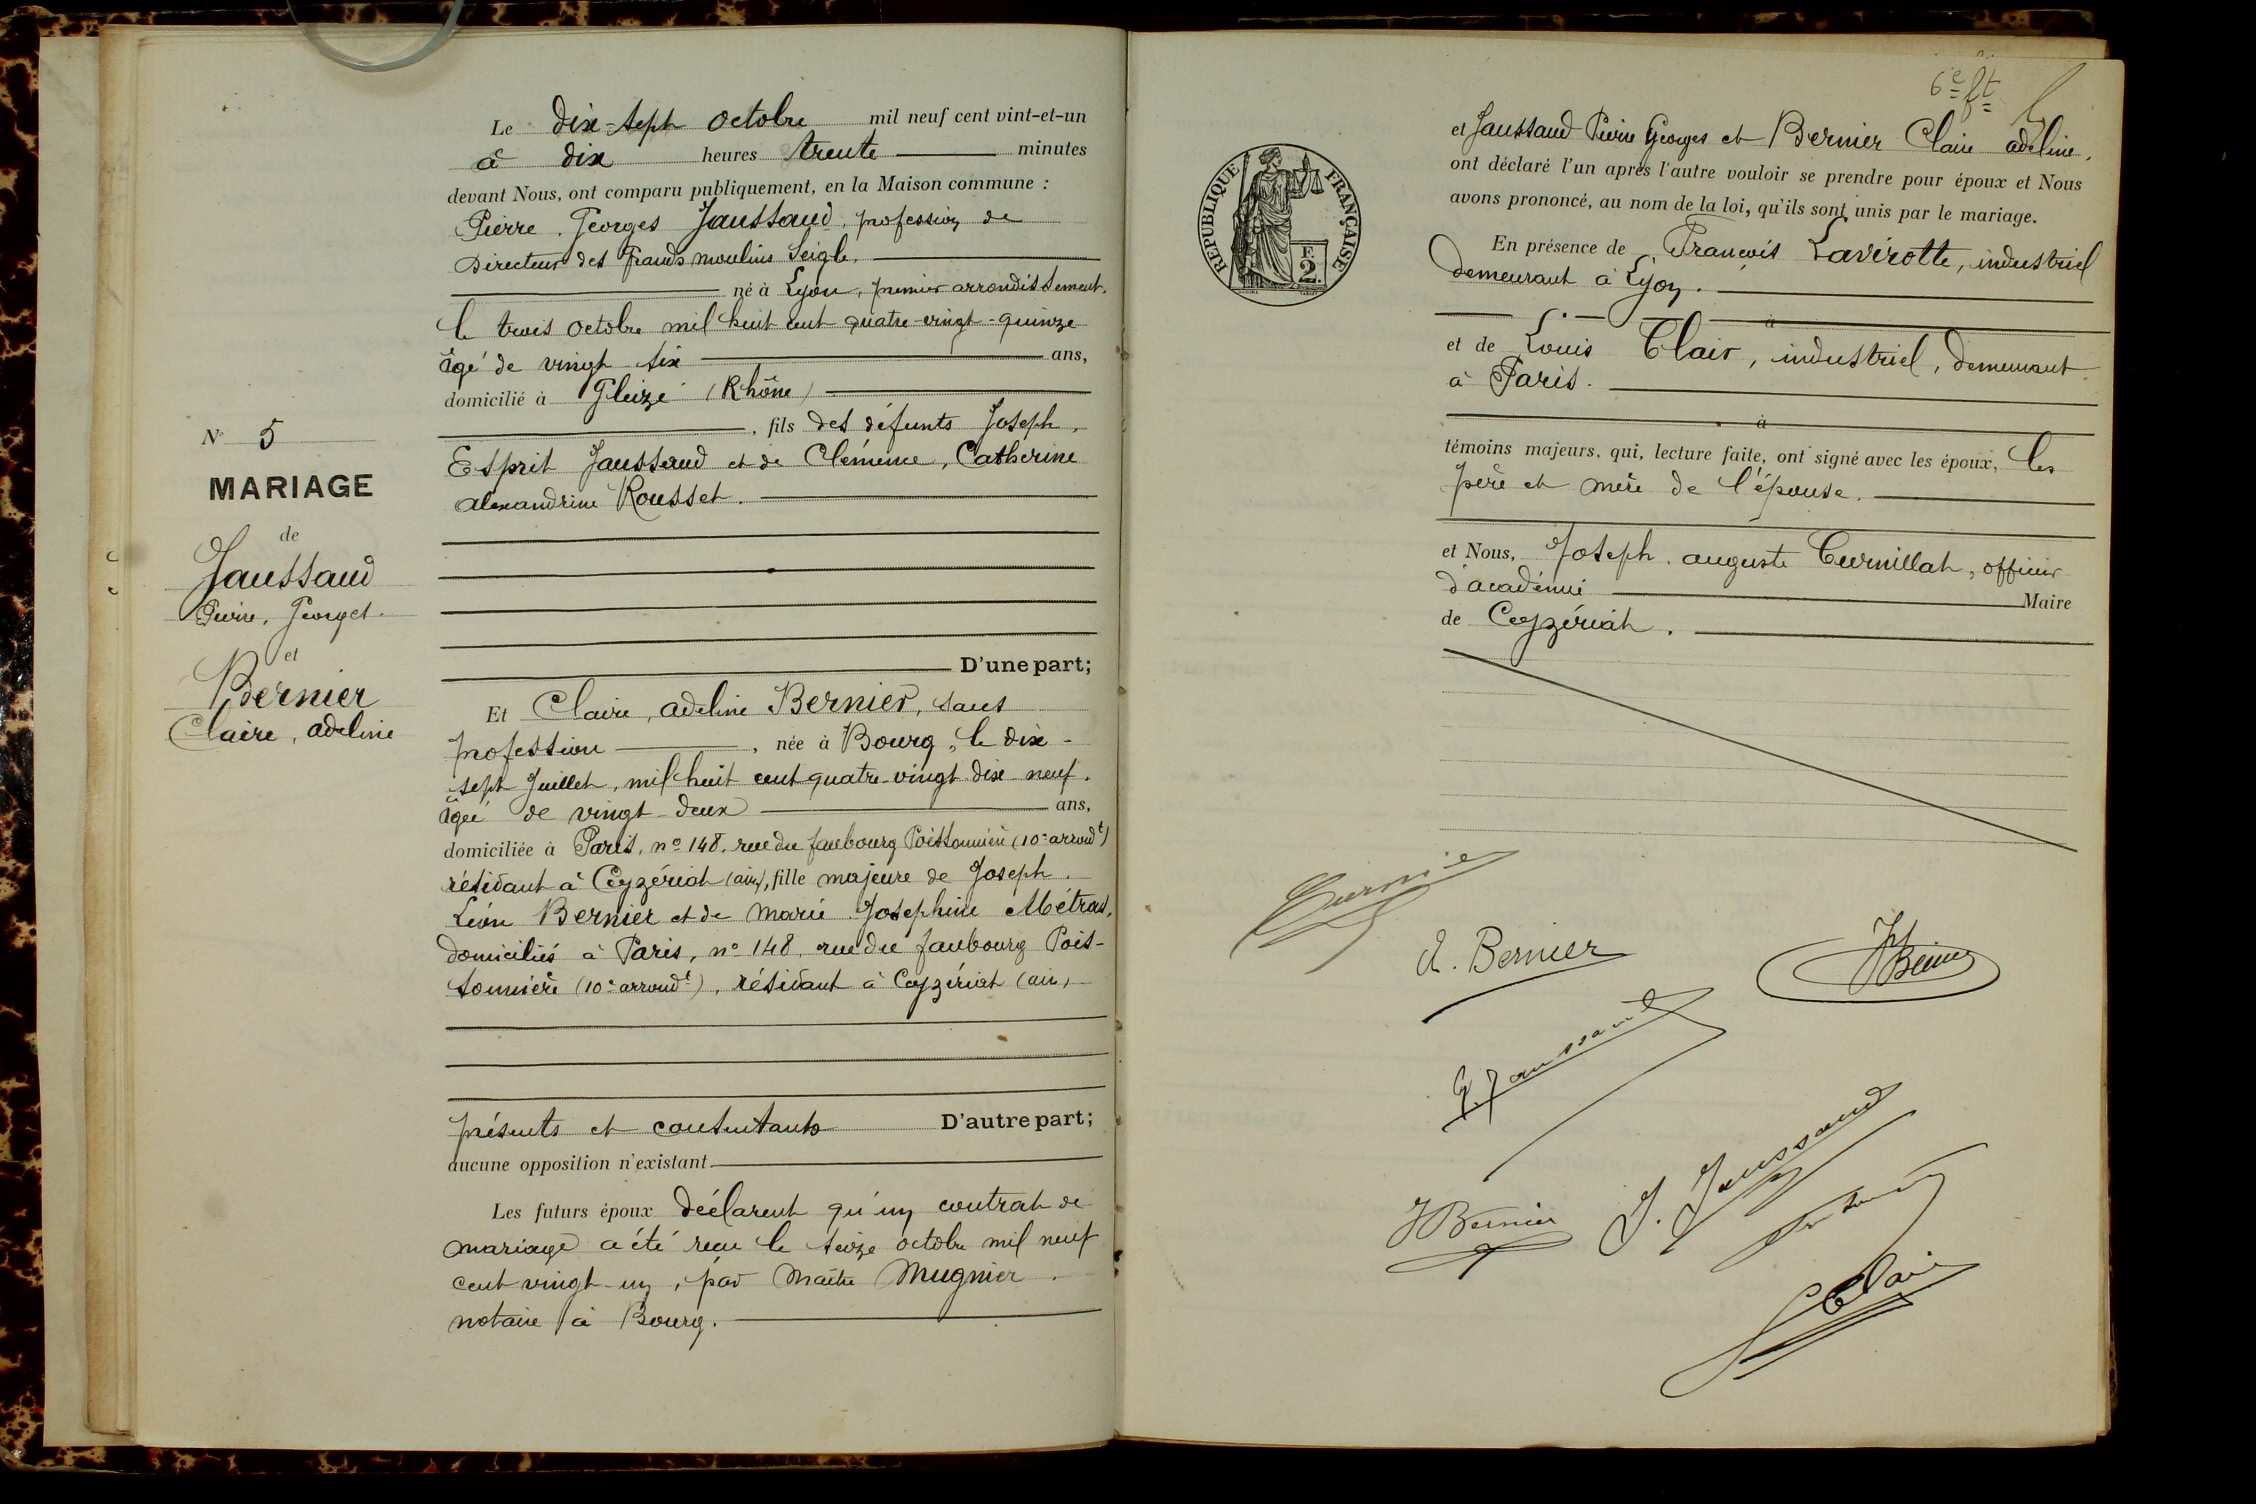 N° 5
MARIAGE
de
Jaussaud
Pierre, Georges
et
Bernier
Claire, adeline
Le dix-sept octobre mil neuf cent vint-et-un
à dix heures trente minutes
devant Nous, ont comparu publiquement, en la Maison commune :
Pierre, Georges Jaussaud, profession de
Directeur des Grands moulins Seigle.
né à Lyon, premier arrondissement,
le trois octobre mil huit cent quatre-vingt-quinze
âgé de vingt six ans,
domicilié à Gleizé (Rhône)
, fils des défunts Joseph,
Esprit Jaussaud et de Clémence, Catherine
alexandrine Rousset.
D'une part;
Et Claire, adeline Bernier, sans
profession , née à Bourg, le dix-
sept Juillet, mil huit cent quatre-vingt-dix-neuf.
âgée de vingt-deux ans,
domiciliée à Paris, n° 148, rue du faubourg Poissonnière (10e arrondt)
résidant à Ceyzériat (ain), fille majeure de Joseph.
Léon Bernier et de Marie Josephine Métras,
domiciliés à Paris, n° 148, rue du faubourg Pois-
sonnière (10e arrondt), résidant à Ceyzériat (ain)
présents et consentants D'autre part;
aucune opposition n'existant
Les futurs époux déclarent qu'un contrat de
mariage a été reçu le seize octobre mil neuf
cent vingt-un, par Maître Mugnier.
notaire à Bourg.
6e ft
RÉPUBLIQUE FRANÇAISE
E
2
et Jaussaud Pierre Georges et Bernier Claire adeline,
ont déclaré l'un après l'autre vouloir se prendre pour époux et Nous
avons prononcé, au nom de la loi, qu'ils sont unis par le mariage.
En présence de François Lavirotte, industriel
demeurant à Lyon.
à
et de Louis Clair, industriel, demeurant
à Paris.
à
témoins majeurs, qui, lecture faite, ont signé avec les époux, les
père et mère de l'épouse.
et Nous, Joseph, auguste Curnillat, officier
d'académie Maire
de Ceyzériat.
A. Bernier
G. Jaussaud
J. Jaussaud
J Bernier
L Clair